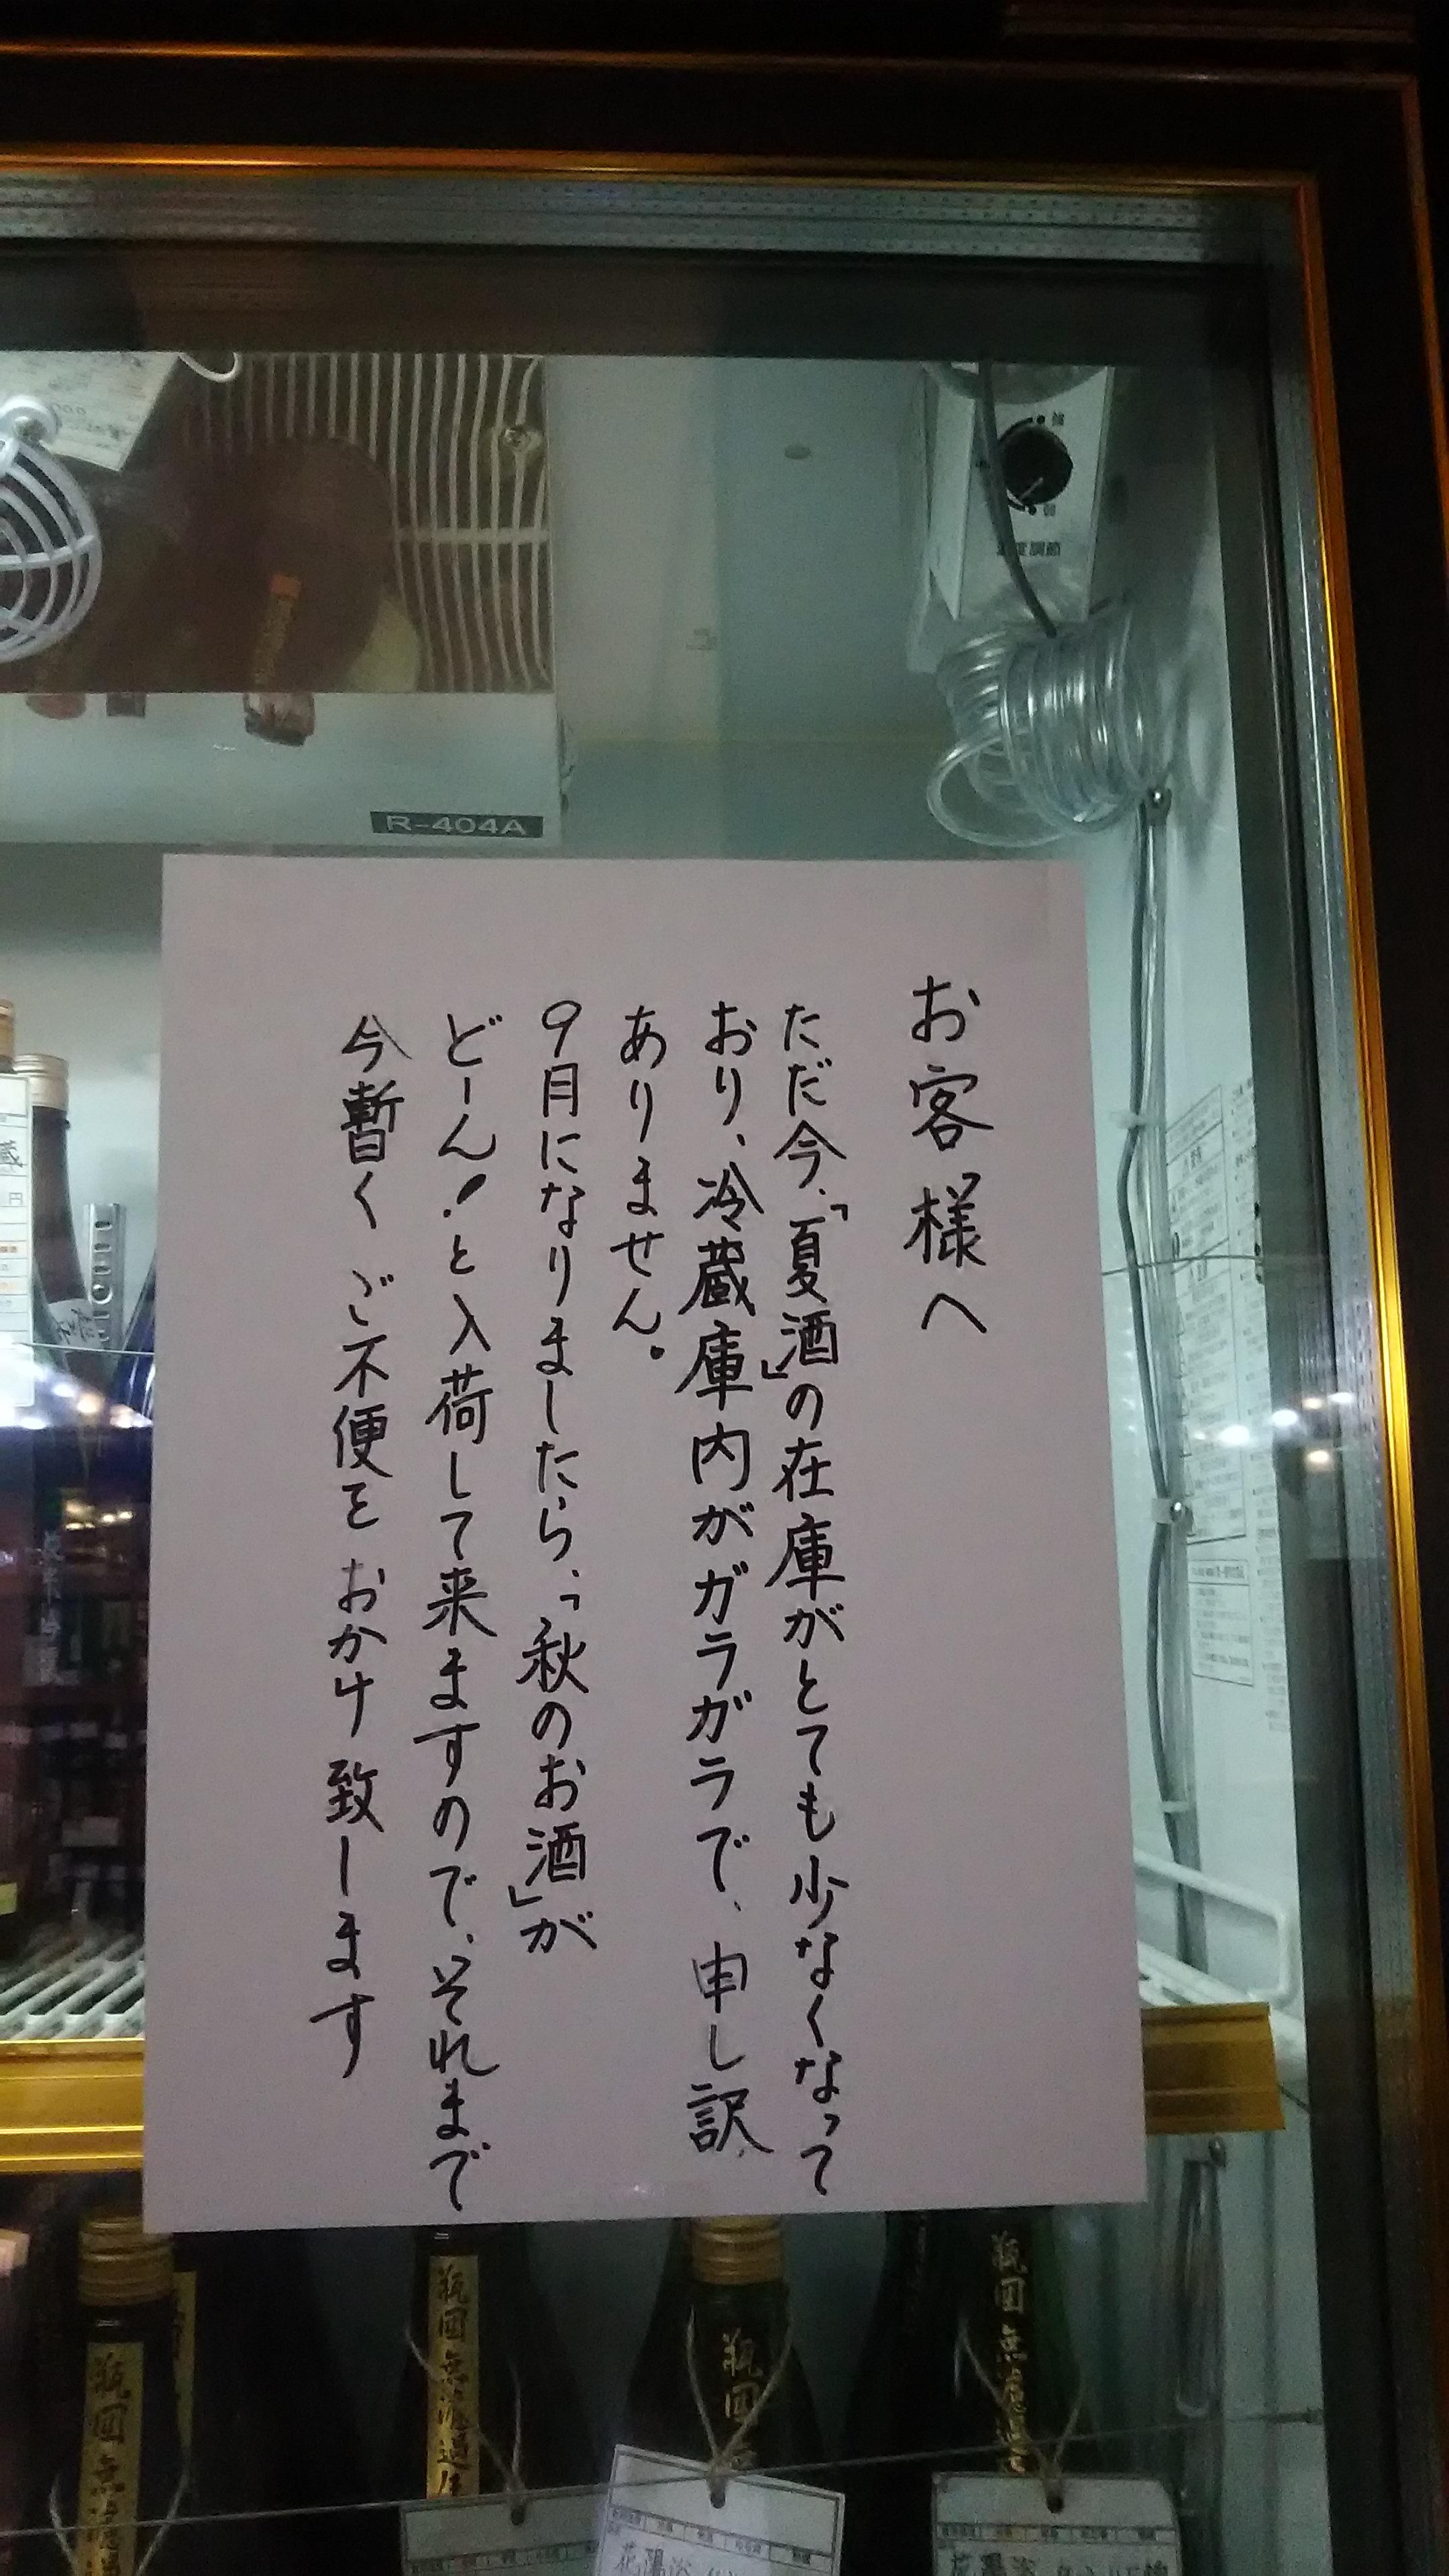 R-404A
お客様へ
ただ今、「夏酒」の在庫がとても少なくなって
おり、冷蔵庫内がガラガラで、申し訳
ありません。
9月になりましたら、「秋のお酒」が
どーん！と入荷して来ますので、それまで
今暫く ご不便を おかけ致します
瓶囲無濾過
瓶囲無濾過生
瓶囲
瓶囲無濾過
花陽浴
花陽浴